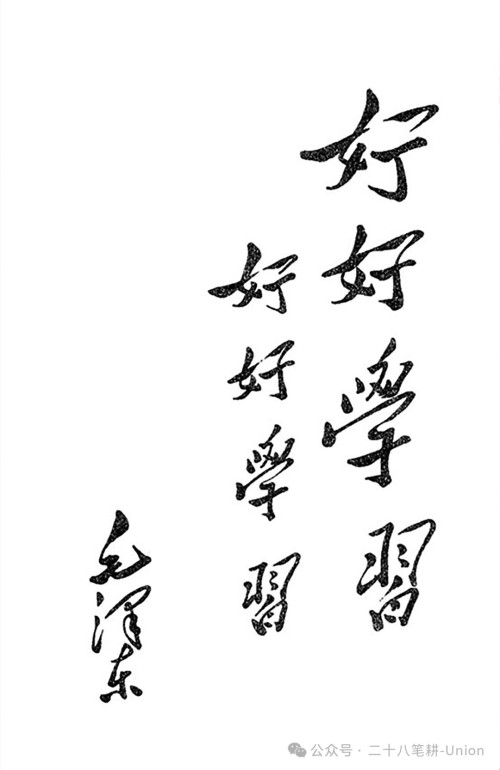 好好學習
好好學習
毛澤东
公众号·二十八笔耕-Union